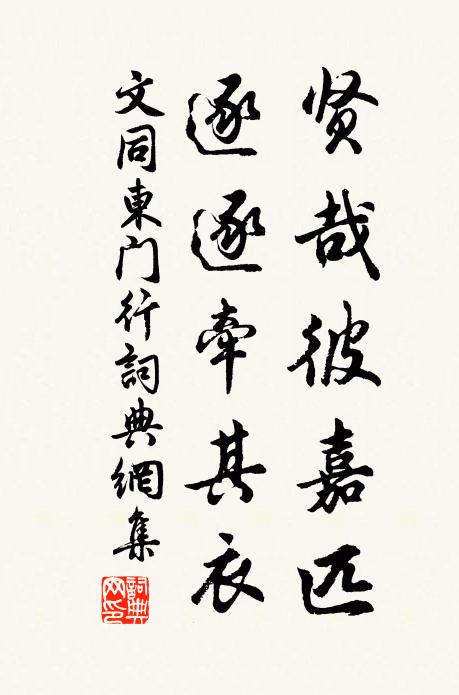 贤哉彼嘉匹
逐逐牵其衣
文同東门行詞典網集
詞典網印